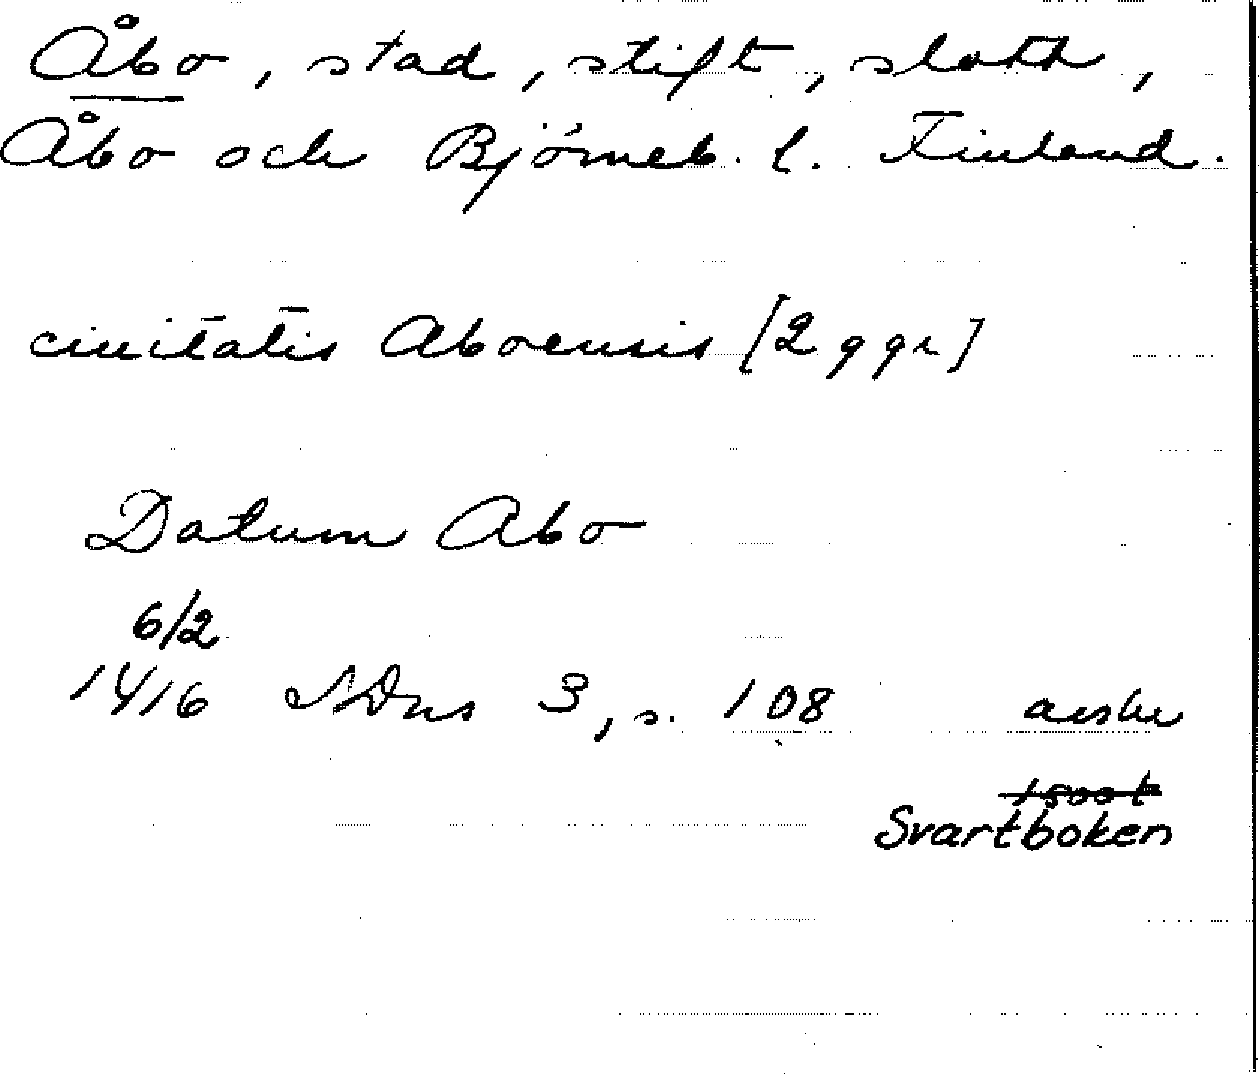 Åbo, stad, stift, slott,
Åbo och Björneb. l. Finland.
ciuitatis Aboensis [2 ggr]
Datum Abo
6/2
1416 SDns 3, s. 108 avskr
1500 t
Svartboken